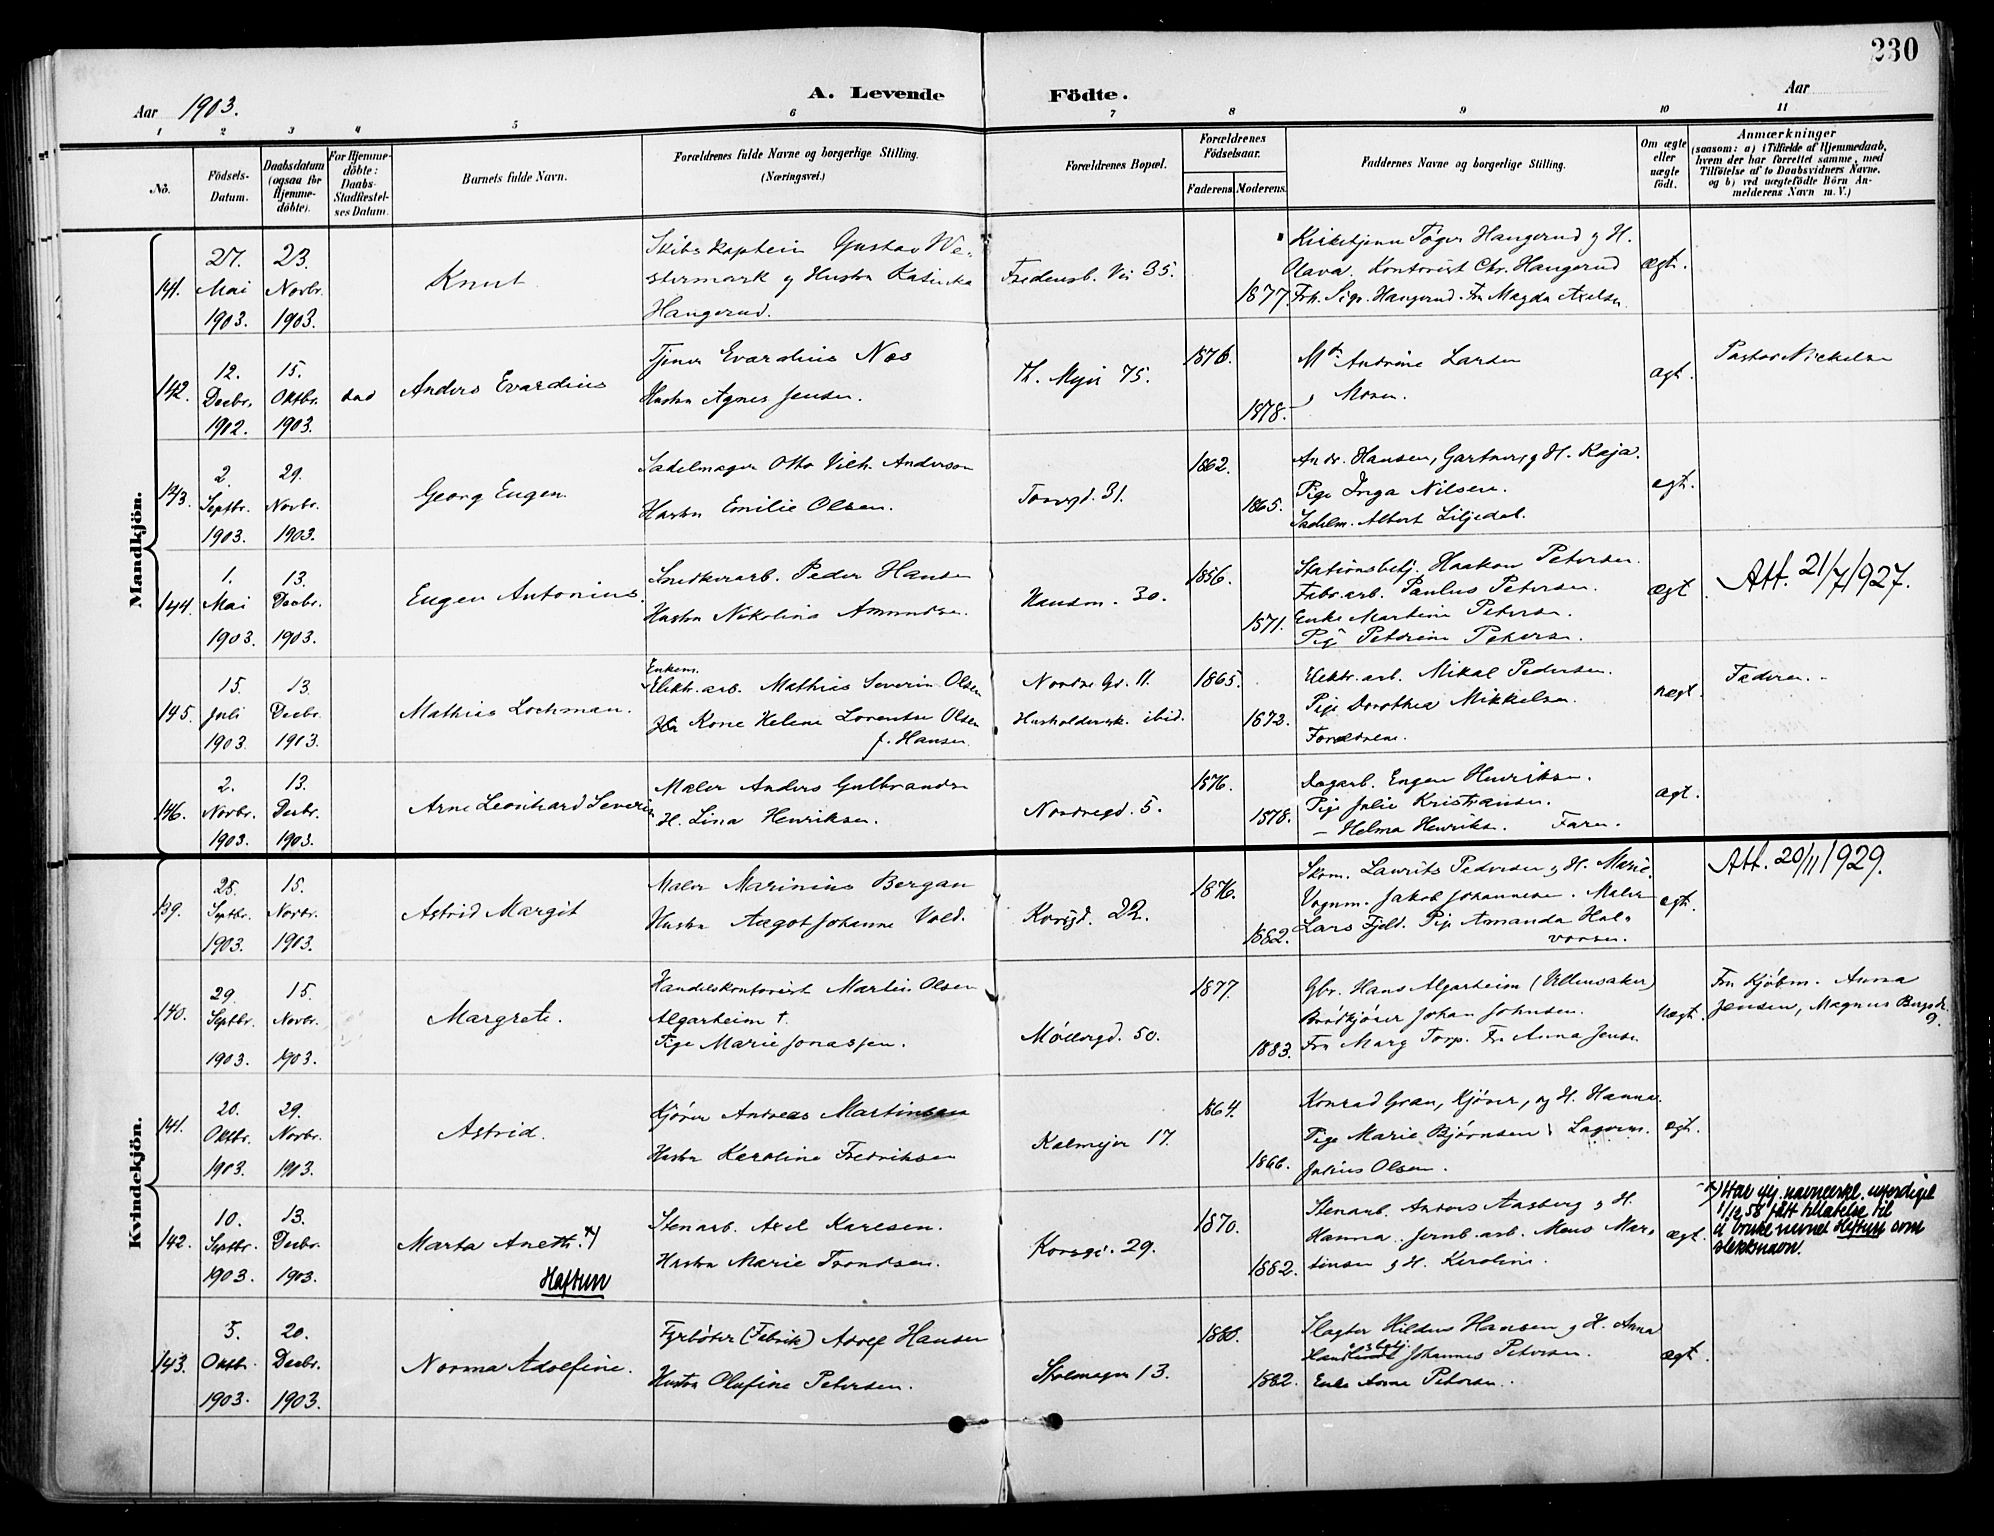 230
Aar 1903.
A. Levende Födte.
Aar
1 2 3 4 5 6 7 8 9 10 11
No.
Födsels-Datum.
Daabsdatum (ogsaa for Hjemme-döbte).
For Hjemme-döbte: Daabs-Stadfestel-ses Datum.
Barnets fulde Navn.
Forældrenes fulde Navne og borgerlige Stilling. (Næringsvei.)
Forældrenes Bopæl.
Forældrenes Födselsaar.
Faderens.
Moderens.
Faddernes Navne og borgerlige Stilling.
Om ægte eller uægte født.
Anmærkninger
(saasom: a) i Tilfælde af Hjemmedaab,
hvem der har forrettet samme, med
Tilföielse af to Daabsvidners Navne,
og b) ved uægtefödte Börn An-
melderens Navn m. V.)
Mandkjön.
141.
27. Mai 1903.
23. Novbr. 1903.
Knut
Skibskaptein Gustav We-
stermark og Hustru Katinka
Haugerud.
Fredensb. Vei 35.
1877
Kirketjener Tøger Haugerud og H.
Olava. Kontorist Chr. Haugerud
Frk. Sigr. Haugerud. Fru Magda Axelsen
ægt.
142.
12. Decbr. 1902.
15. Oktbr. 1903.
Anders Evardius
Tjener Evardius Næs
Hustru Agnes Jensen.
Th. Myer 75.
1876.
1878.
Andrine Larsen
Moren.
ægt.
Pastor Nickelsen
143.
2. Septbr. 1903.
29. Novbr. 1903.
Georg Eugen
Sadelmager Otto Vilh. Anderson
Hustru Emilie Olsen.
Torvgd. 31.
1862.
1865.
Andr. Hansen, Gartner, og H. Kaja.
Pige Inga Nilsen.
Sadelm. Albert Liljedal.
ægt.
144.
1. Mai 1903.
13. Decbr. 1903.
Eugen Antonius.
Snedkerarb. Peder Hansen
Hustru Nikolina Amundsen.
Hausm. 30.
1856.
1871.
Stationsbetj. Haakon Petersen.
Fabr. arb. Paulus Petersen.
Enke Martine Petersen.
Pige Petrine Petersen.
ægt.
Att. 21/7 1927.
145.
15. Juli 1903.
13. Decbr. 1903.
Mathias Lochman.
Enkem.
Elektr. arb. Mathias Severin Olsen
Kone Helene Lorentse Olsen
f. Hansen
Nordre Gd. 11.
Husholdersk. ibid.
1865.
1872.
Elektr. arb. Mikal Pedersen.
Pige Dorothea Mikkelsen.
Forældrene.
uægt.
Faderen.
146.
2. Novbr. 1903.
13. Decbr. 1903.
Arne Leonhard Severin
Maler Anders Gulbrandsen
H. Lina Henriksen.
Nordregd. 5.
1876.
1878.
Dagarb. Eugen Henriksen.
Pige Julie Kristiansen.
— Helma Henriks. Faren.
ægt.
Kvindekjön.
139.
25. Septbr. 1903.
15. Novbr. 1903.
Astrid Margit
Maler Marinius Bergan
Hustru Aagot Johanne Vold.
Korsgd. 22.
1876.
1882.
Skom. Laurits Pedersen og H. Marie.
Vognm. Jakob Johannesen. Maler
Lars Fjeld. Pige Amanda Hal-
vorsen.
ægt.
Att. 20/11 1929.
140.
29. Septbr. 1903.
15. Novbr. 1903.
Margrete.
Handelskontorist Martin Olsen
Algarheim †.
Pige Marie Jonassen.
Møllergd. 50.
1877.
1883.
Gbr. Hans Algarheim (Ullensaker)
Brødkjører Johan Johnsen.
Fru Marg Torp. Fr. Anna Jensen
uægt.
Fru Kjøbm. Anna
Jensen, Magnus Bergsgd.
9.
141.
20. Oktbr. 1903.
29. Novbr. 1903.
Astrid.
Kjører Andreas Martinsen
Hustru Karoline Fredriksen
Kalmeyer 17.
1864.
1866.
Konrad Gran, Kjører, og H. Hanna.
Pige Marie Bjørnsen. Lagerm.
Julius Olsen.
ægt.
142.
10. Septbr. 1903.
13. Decbr. 1903.
Marta Aneth. x)
Haftun
Stenarb. Axel Karlsen.
Hustru Marie Trondsen.
Korsgd. 29.
1870.
1882.
Stenarb. Anders Aasberg og H.
Hanna. Jernb. arb. Mons Mar-
tinsen og H. Karoline.
ægt.
x) Har iflg. navneerkl. utferdiget
1/12 58 fått tillatelse til
å bruke navnet Haftun som
slektsnavn.
143.
5. Oktbr. 1903.
20. Decbr. 1903.
Norma Adolfine.
Fyrbøter (Fabrik) Adolf Hansen
Hustru Olufine Petersen.
13.
1880.
1882.
Slagter Hildus Hansen og H. Anna
Johannes Petersen.
Enke Anne Petersen.
ægt.